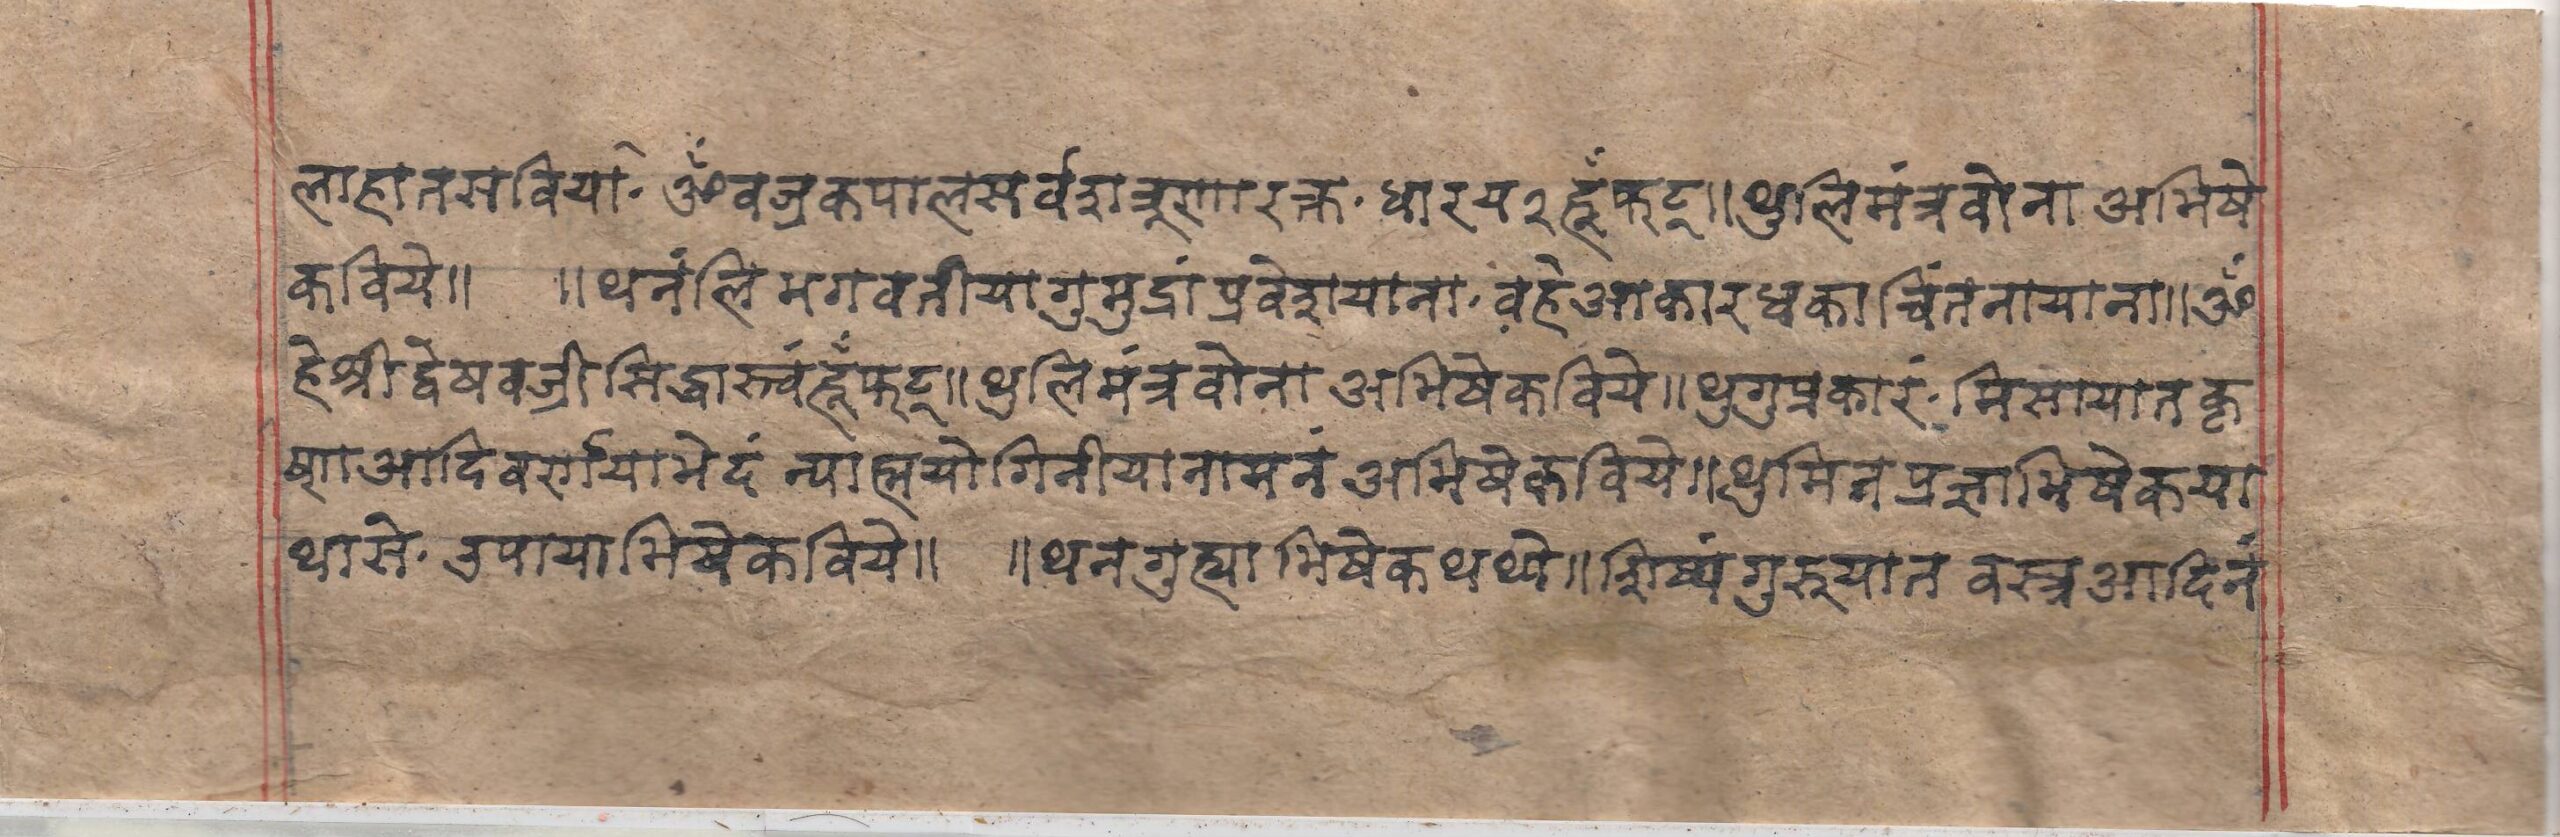 लाहातसवियाे· ॐवज्रकपालसर्वशत्रूणारक्त· धारय२हूँफट्॥थुलिमंत्रवोना अभिषे
कविये॥ ॥थनंलि भगवतीयागुमुद्रां प्रवेशयाना· वहेअकारधका चिंतनायाना॥ॐ
हेश्रीद्वेषवज्री सिद्धास्त्वंहूँफट्॥थुलिमंत्रवोना अभिषेकविये॥थुगुप्रकारं· मिसायातकृ
ष्णआदिवर्णयाभेदं न्यात्मयोगिनीयानामनं अभिषेकविये॥थुमिनप्रज्ञाभिषेकया
थासे· उपायाभिषेकविये॥ ॥थनगुह्याभिषेकथथे॥शिष्यंगुरुयात वस्त्रआदिनं